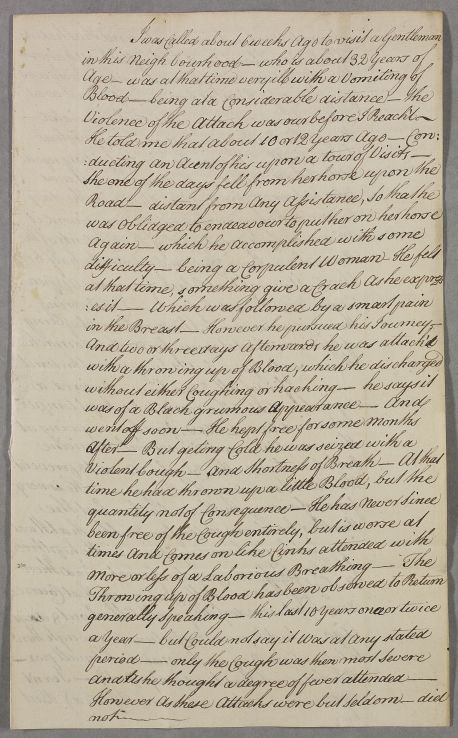 I was Called about 6 weeks Ago to visit a Gentleman
in this Neighbourhood — who is about 32 Years of
Age — was at that time very ill with a Vomiting of
Blood — being at a Considerable distance — the
Violence of the Attack was our before I Reach't —
He told me that about 10 or 12 Years Ago — Con:
:ducting an Aunt of his upon a tour of Visits —
She one of the days fell from her horse upon the
Road — distant from Any Assistance, so that he
was Obliadged to endeavour to put her on her horse
Again — which he accomplished with some
difficulty — being a Corpulent Woman — He felt
at that time, something give a Crack As he express
:es it — Which was followed by a smart pain
in the Breast — However he pursued his Journey,
And two or three days Afterwards he was attack'd
with a throwing up of Blood, which he discharged
without either Coughing or haching — he says it
was of a Black grumous Appearance — And
went off soon — He kept free for some Months
After — But geting Cold he was seized with a
Violent Cough — And Shortness of Breath — At that
time he had thrown up a little Blood, but the
quantity not of Consequence — He has Never Since
been free of the Cough entirely, but is worse at
times And Comes on like Cinks attended with
more or less of a Laborious Breathing — The
Throwing up of Blood has been observed to Return
generally speaking — this last 10 Years once or twice
a Year — but Could not say it Was at Any stated
period — only the Cough was then most Severe
and he thought a degree of fever attended —
However As these Attacks were but Seldom — did
not —